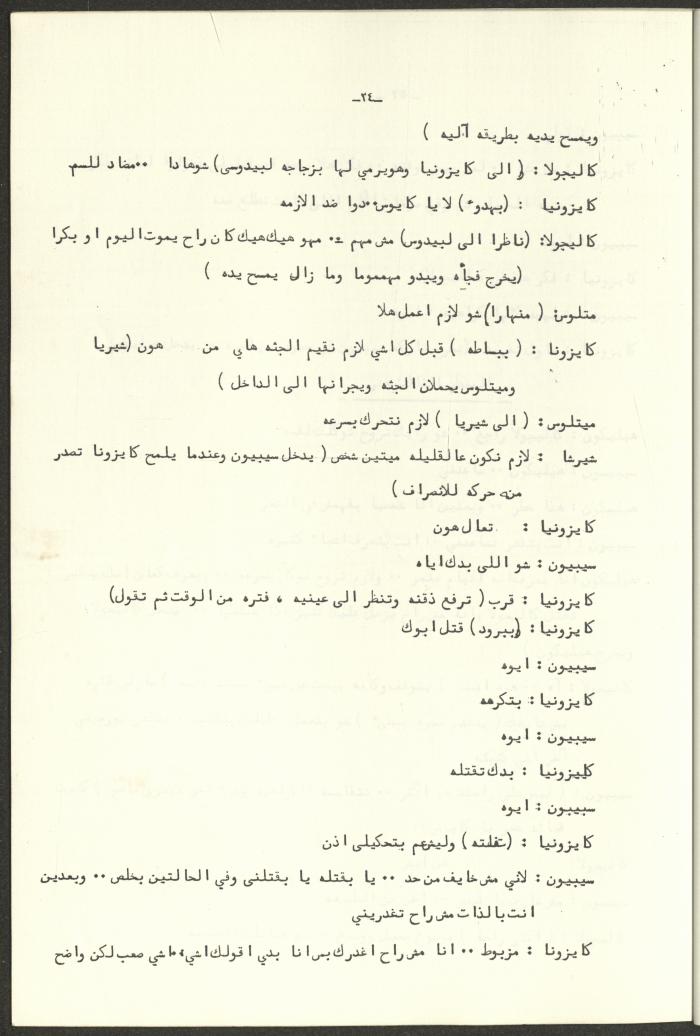 ـ٢٤ـ
ويمسح يديه بطريقه آليه )
كاليجولا : ( الى كايزونيا وهويرمي لها بزجاجه لبيدوسى) شوهادا ٠٠مضاد للسم
كايزونيا : (بهدوء) لا يا كايوس٠٠دوا ضد الازمه
كاليجولا: (ناظرا الى لبيدوس) مش مهم ٠٠ مهو هيك هيك كان راح يموت اليوم او بكرا
(يخرج فجأه ويبدو مهموما وما زال يمسح يده )
متلوس: ( منهارا) شو لازم اعمل هلا
كايزونا : ( ببساطه ) قبل كل اشي لازم نقيم الجثه هاي من هون (شيريا
وميتلوس يحملان الجثه ويجرانها الى الداخل )
ميتلوس: ( الى شيريا ) لازم نتحرك بسرعه
شيرشا : لازم نكون عالقليله ميتين شخص ( يدخل سيبيون وعندما يلمح كايزونا تصدر
منه حركه للانصراف )
كايزونيا : تعال هون
سيبيون : شو اللى بدك اياه
كايزونيا : قرب ( ترفع ذقنه وتنظر الى عينيه ، فتره من الوقت ثم تقول)
كايزونيا : (ببرود ) قتل ابوك
سيبيون : ايوه
كايزونيا : بتكرهه
سيبيون : ايوه
كايزونيا : بدك تقتله
سيبيون : ايوه
كايزونيا : (تفلته ) وليش بتحكيلى اذن
سيبيون : لاني مش خايف من حد ٠٠ يا بقتله يا بقتلنى وفي الحالتين بخلص ٠٠ وبعدين
انت بالذات مش راح تغدريني
كايزونا : مزبوط ٠٠ انا مش راح اغدرك بس انا بدي اقولك اشي ٠٠ اشي صعب لكن واضح